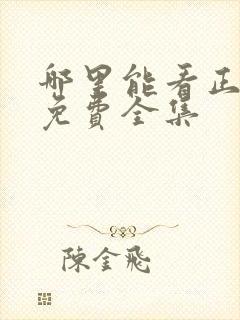 哪里能看正
免費全集
陳金飛